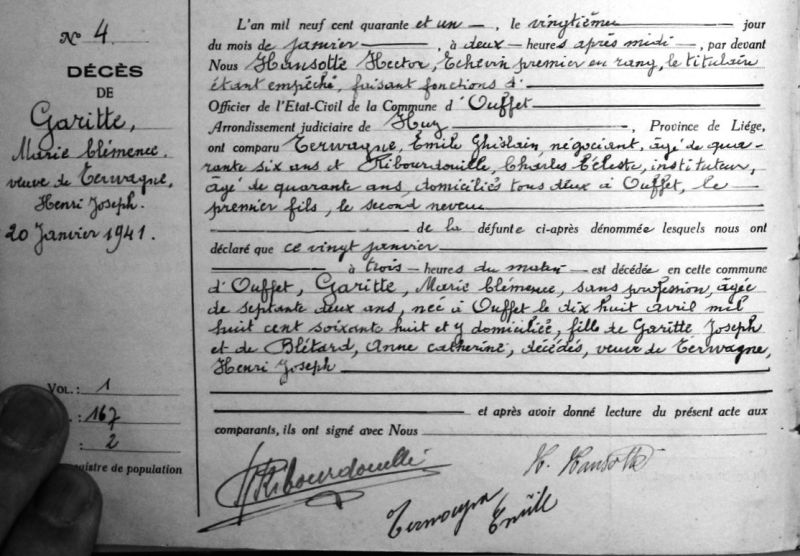 N° 4
DÉCÈS
DE
Garitte,
Marie Clémence.
veuve de Terwagne,
Henri Joseph.
20 Janvier 1941.
VOL.: 1
: 167
: 2
istre de population
L'an mil neuf cent quarante et un, le vingtième jour
du mois de janvier, à deux heures après midi, par devant
Nous Hansotte Hector, Echevin premier en rang, le titulaire
étant empêché, faisant fonctions d'
Officier de l'Etat-Civil de la Commune d'Ouffet
Arrondissement judiciaire de Huy, Province de Liége,
ont comparu Terwagne, Emile Ghislain, négociant, âgé de qua-
rante six ans et Ribourdouille, Charles Céleste, instituteur,
âgé de quarante ans, domiciliés tous deux à Ouffet, le
premier fils, le second neveu
de la défunte ci-après dénommée lesquels nous ont
déclaré que ce vingt janvier
à trois heures du matin est décédée en cette commune
d'Ouffet, Garitte, Marie Clémence, sans profession, âgée
de septante deux ans, née à Ouffet le dix huit avril mil
huit cent soixante huit et y domiciliée, fille de Garitte Joseph
et de Blétard, Anne Catherine, décédés, veuve de Terwagne,
Henri Joseph
et après avoir donné lecture du présent acte aux
comparants, ils ont signé avec Nous
Ribourdouille
H. Hansotte
Terwagne
Emile